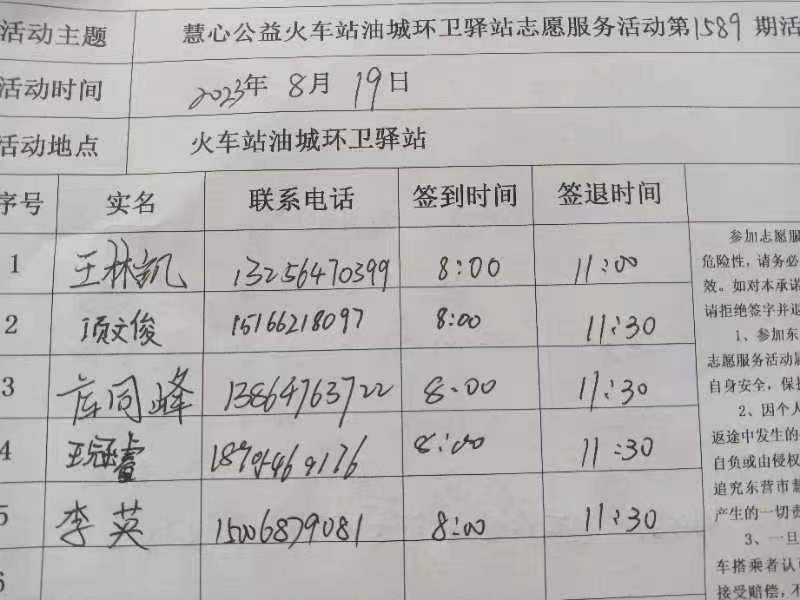 活动主题 慧心公益火车站油城环卫驿站志愿服务活动第1589期活
活动时间 2023年 8月 19日
活动地点 火车站油城环卫驿站
序号 实名 联系电话 签到时间 签退时间
1 王林凯 13256470399 8:00 11:00
2 项文俊 15166218097 8:00 11:30
3 同峰 13864763722 8:00 11:30
4 8:00 11:30
5 李英 15006879081 8:00 11:30
6
参加志愿服
危险性,请务必
效。如对本承诺
请拒绝签字并退
1、参加东
志愿服务活动
自身安全,保
2、因个人
返途中发生的
自负或由侵权
追究东营市慧
产生的一切责
3、一旦
车搭乘者认
接受赔偿,不